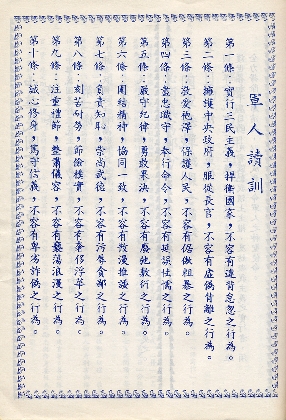 軍人讀訓
第一條：實行三民主義，捍衛國家，不容有違背怠忽之行為。
第二條：擁護中央政府，服從長官，不容有虛偽背離之行為。
第三條：敬愛袍澤，保護人民，不容有倨傲粗暴之行為。
第四條：盡忠職守，奉行命令，不容有延誤怯懦之行為。
第五條：嚴守紀律，勇敢果決，不容有廢弛敷衍之行為。
第六條：團結精神，協同一致，不容有散漫推諉之行為。
第七條：負責知恥，崇尚武德，不容有污辱貪鄙之行為。
第八條：刻苦耐勞，節儉樸實，不容有奢侈浮華之行為。
第九條：注重禮節，整肅儀容，不容有褻蕩浪漫之行為。
第十條：誠心修身，篤守信義，不容有卑劣詐偽之行為。